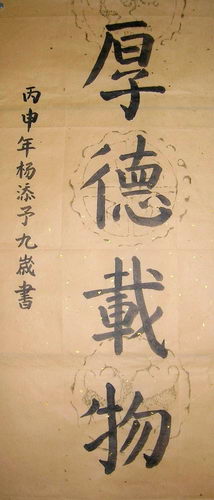 厚德載物
丙申年杨添予九歲書